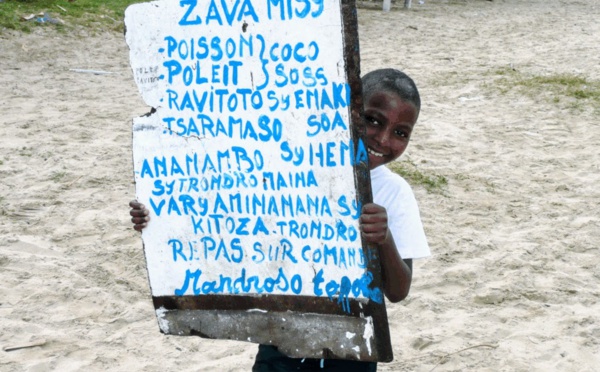 ZAVA MISY
- POISSON } COCO
- POLEIT } SOSS
- RAVITOTO SY ENAK
- TSARAMASO SOA
ANANAMBO SY HENA
SY TRONDRO MAINA
VARY AMINANANA SY
KITOZA TRONDRO
REPAS SUR COMANDE
Mandroso